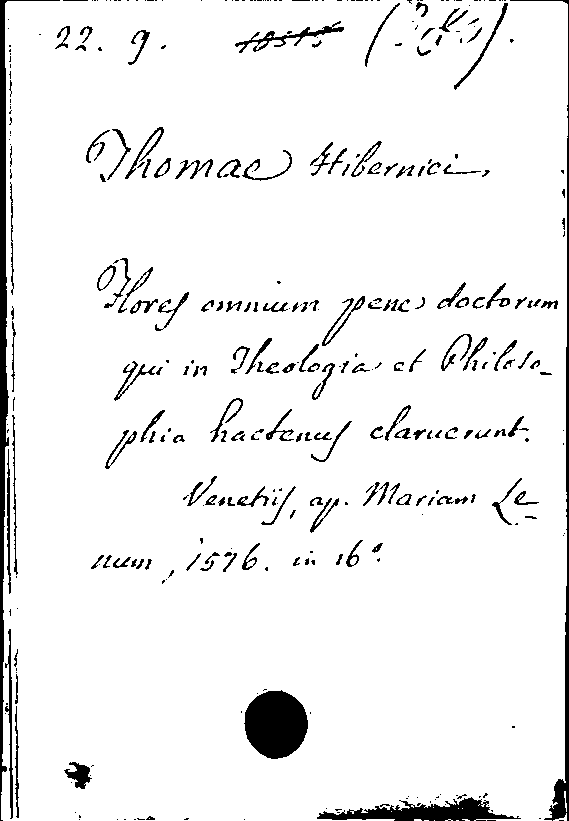 22. 9. 10515
Thomae Hibernici,
Flores omnium pene doctorum
qui in Theologia et Philoso-
phia hactenus claruerunt.
Venetiis, ap. Mariam Le-
num, 1576. in 16°.